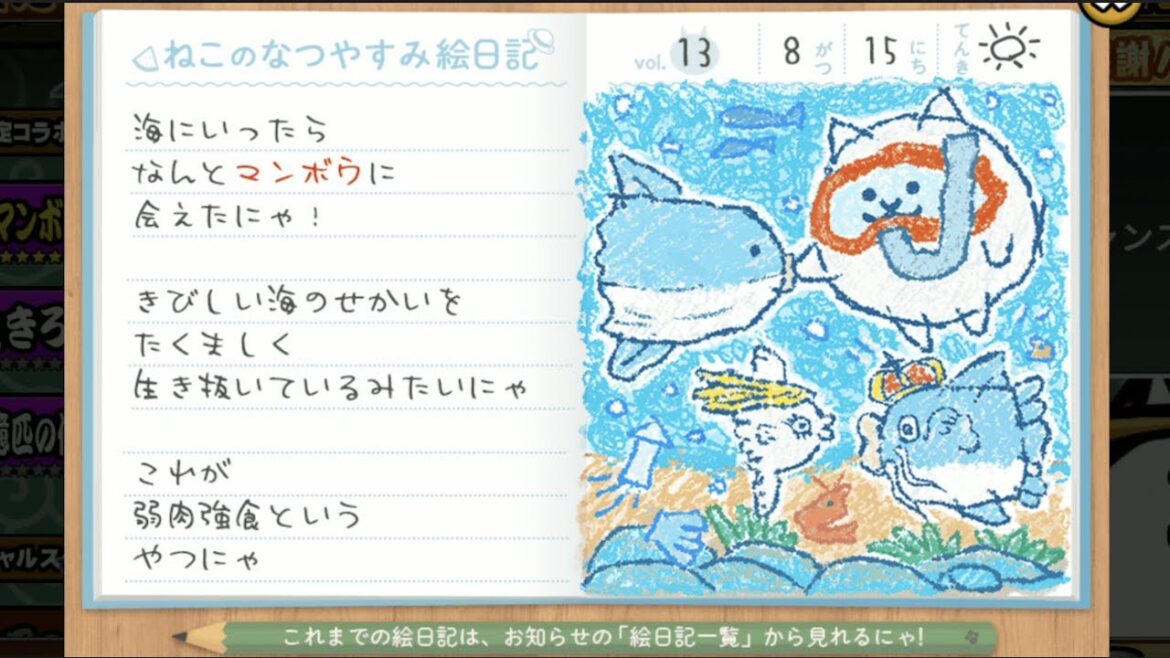 ねこのなつやすみ絵日記
vol. 13
8がつ
15にち
てんき
海にいったら
なんとマンボウに
会えたにゃ！
きびしい海のせかいを
たくましく
生き抜いているみたいにゃ
これが
弱肉強食という
やつにゃ
これまでの絵日記は、お知らせの「絵日記一覧」から見れるにゃ!
定コラボ
マンボ
きろ
匹の
ャルス
謝
ャンス